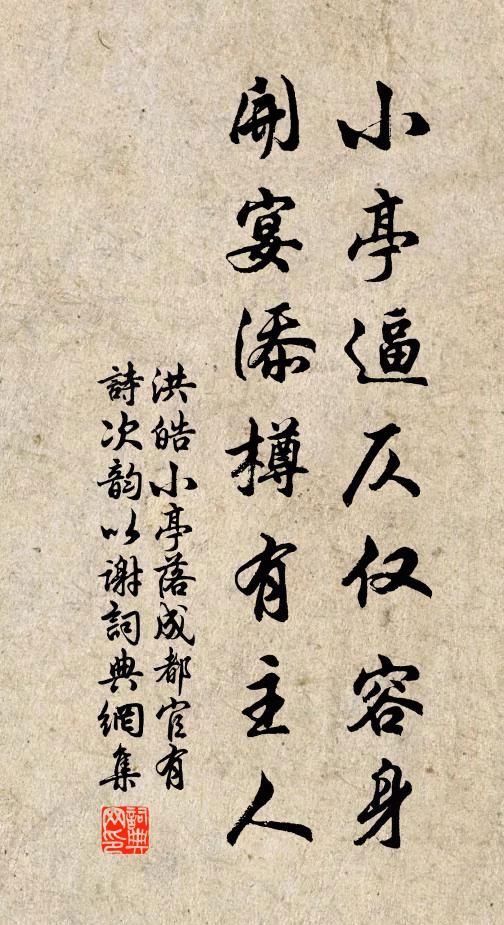 小亭逼仄仅容身
開宴添樽有主人
洪皓小亭落成都官有
詩次韵以谢詞典網集
詞典
网印